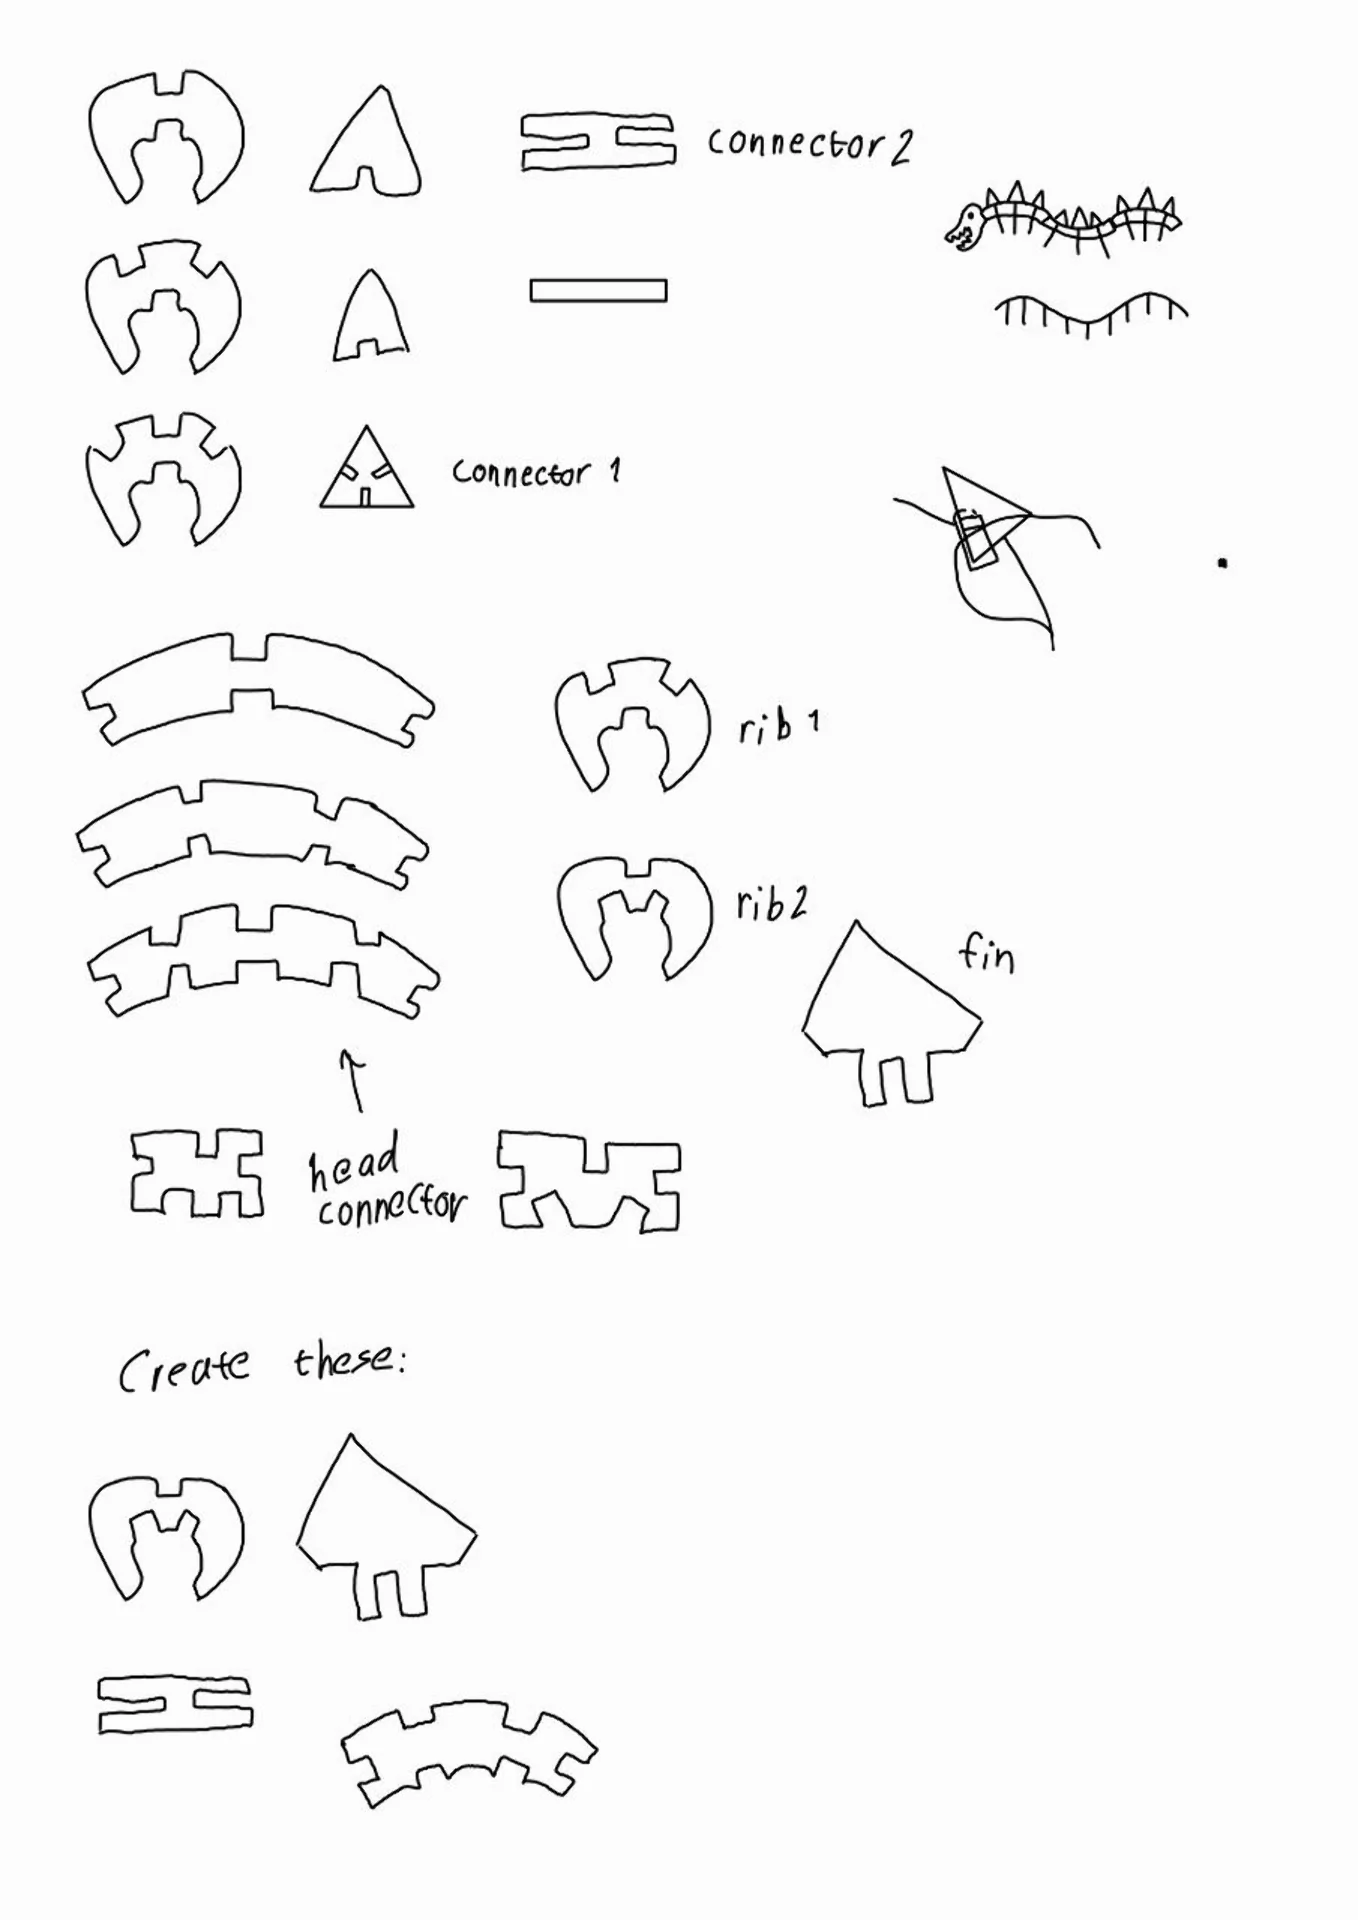 connector 2
connector 1
rib 1
rib2
fin
head
connector
Create these: